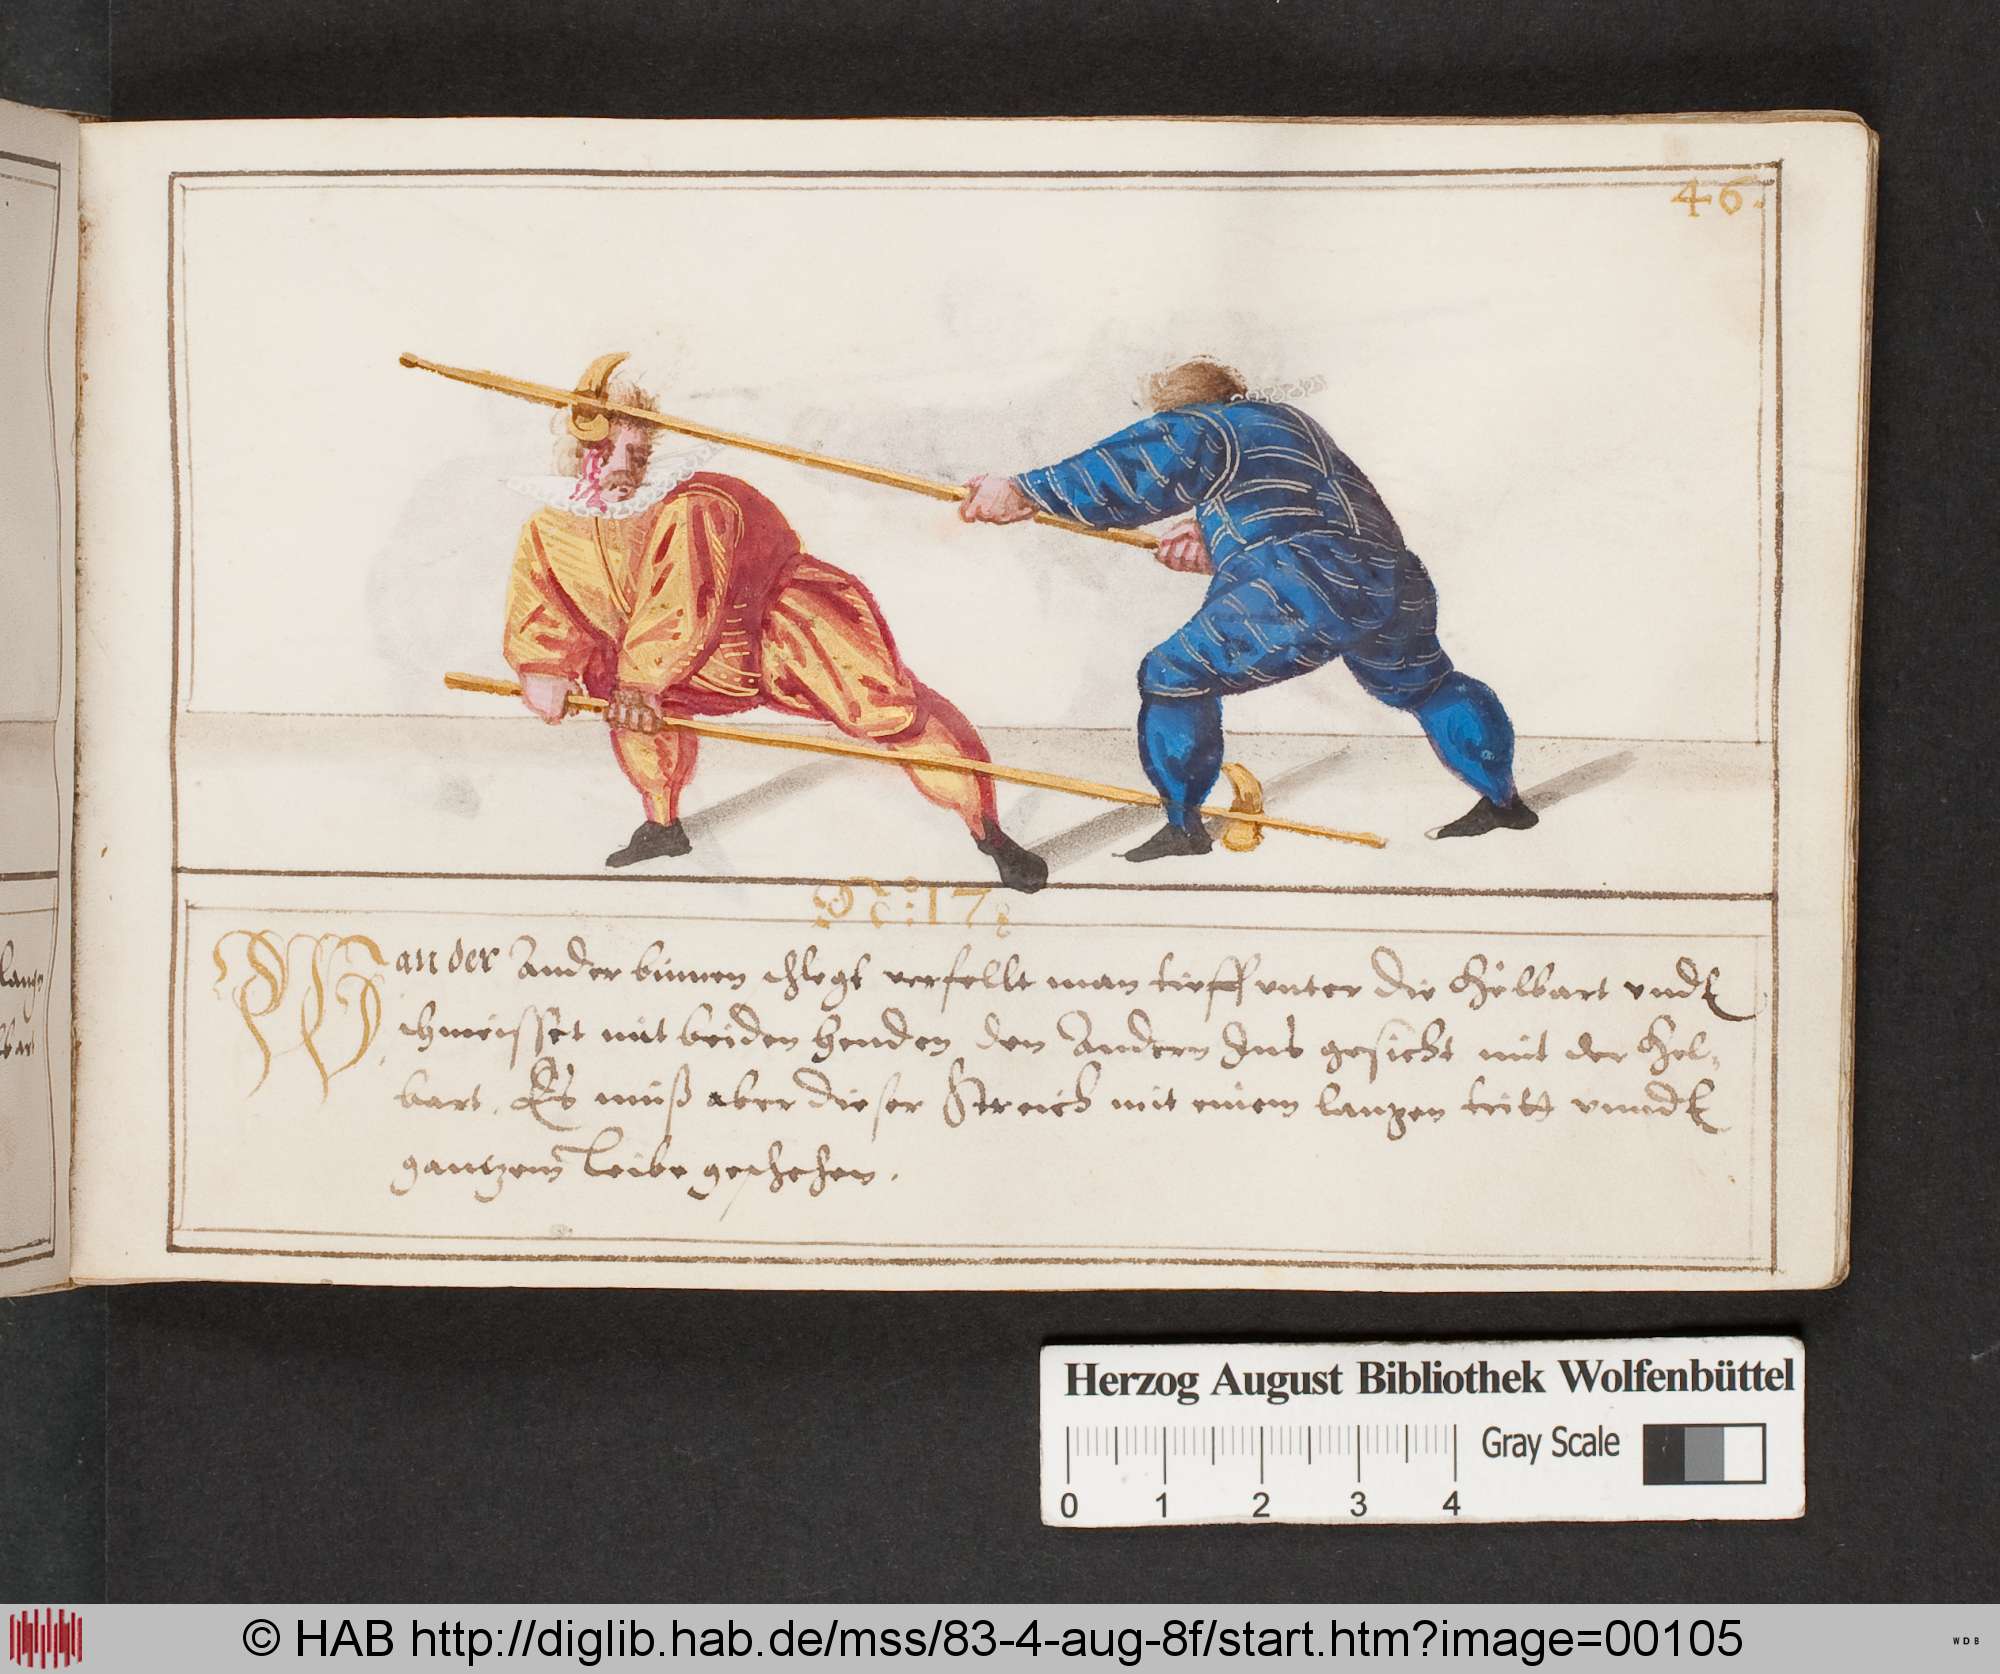 46.
N: 17
Wan der Ander binnen schlegt verfellt man tieff vnter die Helbart vnd
schmeisset mit beiden henden den Andern Ins gesicht mit der Hel-
bart. Es muß aber dieser Streich mit einem langen tritt vnnd
gantzem Leibe geschehen.
Herzog August Bibliothek Wolfenbüttel
Gray Scale
0 1 2 3 4
© HAB http://diglib.hab.de/mss/83-4-aug-8f/start.htm?image=00105
WDB